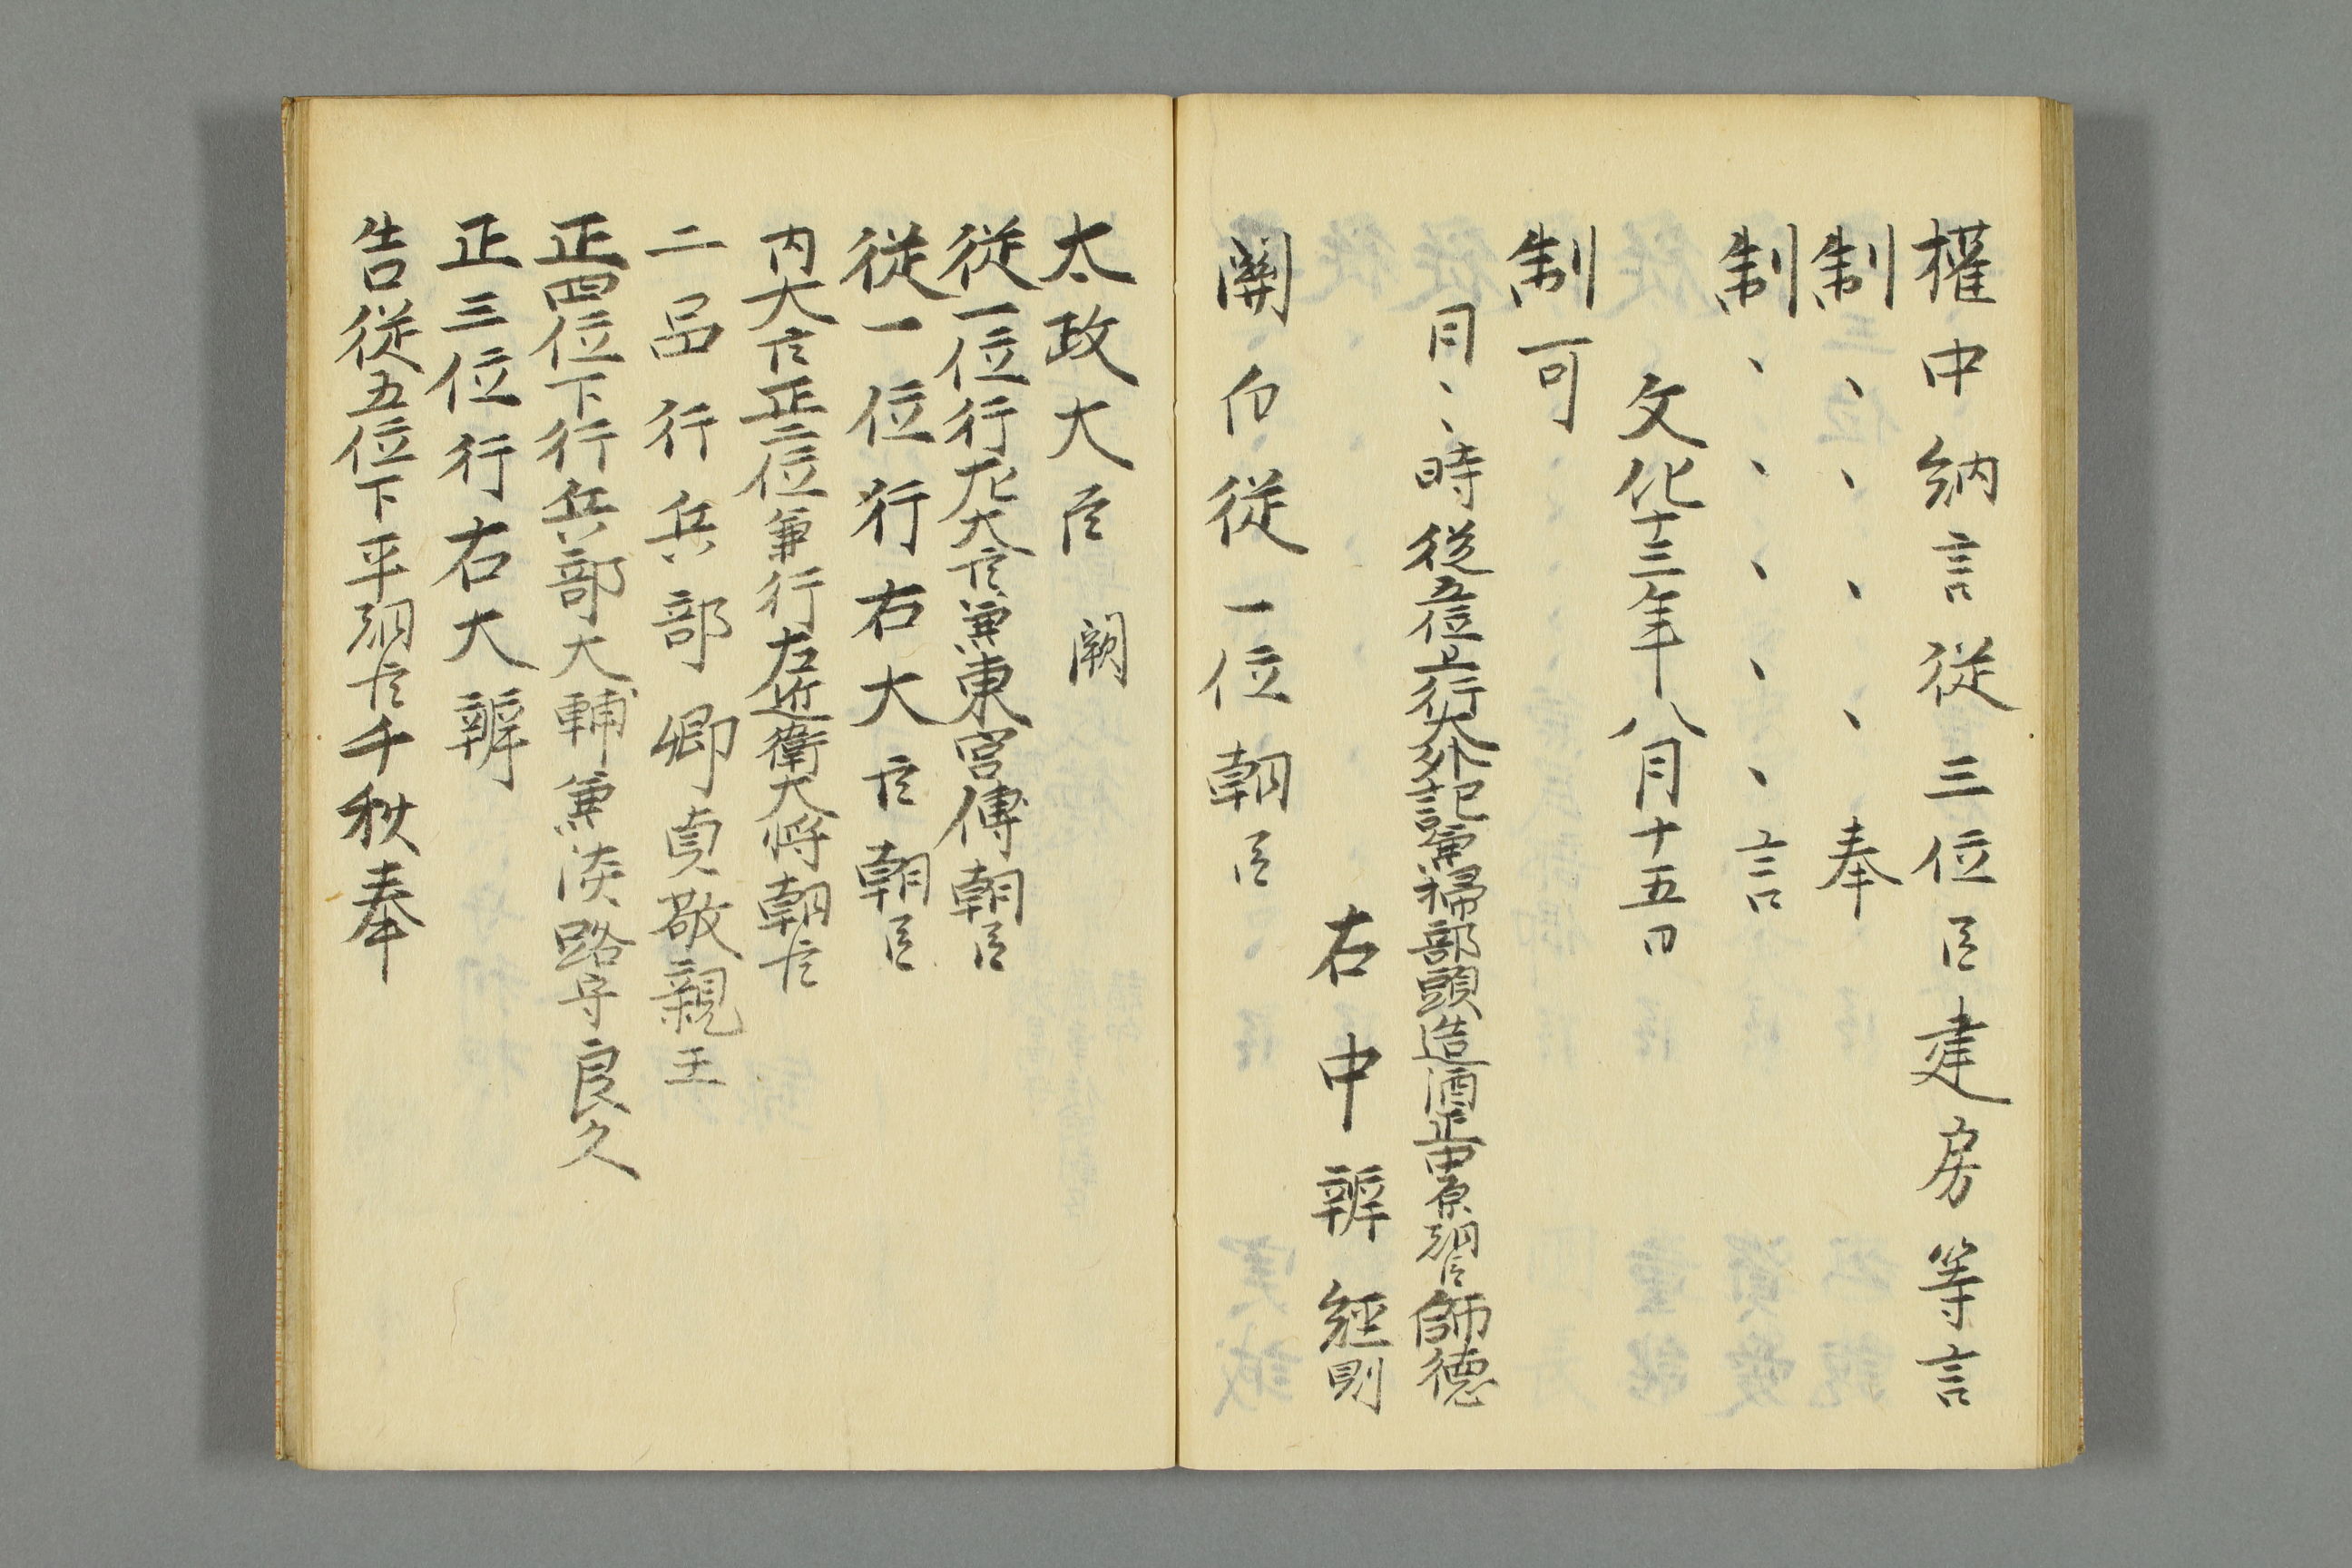 權中納言從三位臣建房等言
制、、、、奉
制、、、、、言
文化十三年八月十五日
制可
月、、時從五位上行大外記兼掃部頭造酒正中原朝臣師德
右中辨經則
關白從一位朝臣
太政大臣 闕
從一位行左大臣兼東宮傅朝臣
從一位行右大臣朝臣
內大臣正二位兼行左近衛大将朝臣
二品行兵部卿貞敬親王
正四位下行兵部大輔兼淡路守良久
正三位行右大辨
告從五位下平朝臣千秋奉